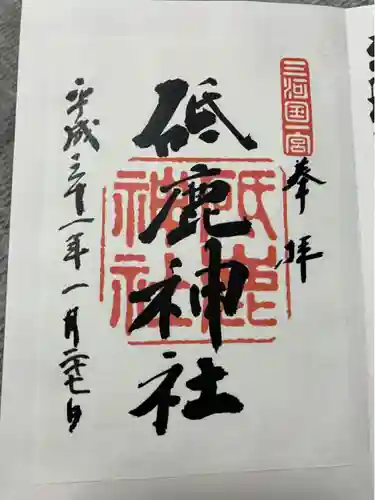 三河国一宮
奉拝
砥鹿神社
砥鹿
神社
平成三十一年一月二十七日